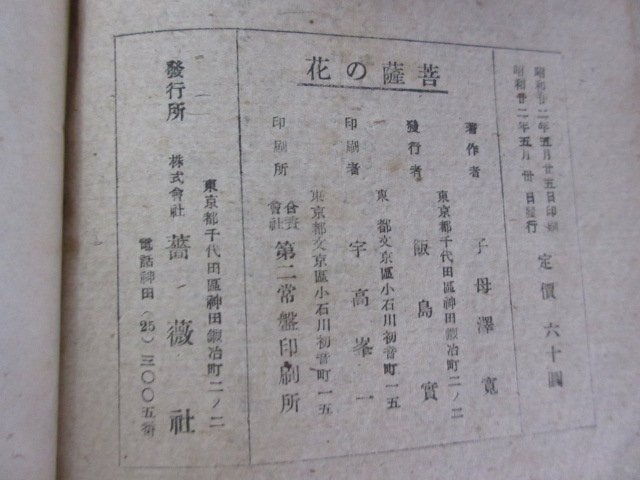 昭和廿二年五月廿五日印刷
昭和廿二年五月卅日發行
定價 六十圓
花の薩菩
著作者 子母澤寬
東京都千代田區神田鍛冶町二ノ二
發行者 飯島實
東 都文京區小石川初音町一五
印刷者 宇高峯一
東京都文京區小石川初音町一五
印刷所 合資會社 第二常盤印刷所
東京都千代田區神田鍛冶町二ノ二
發行所 株式會社 薔薇社
電話神田(25)三〇〇五番